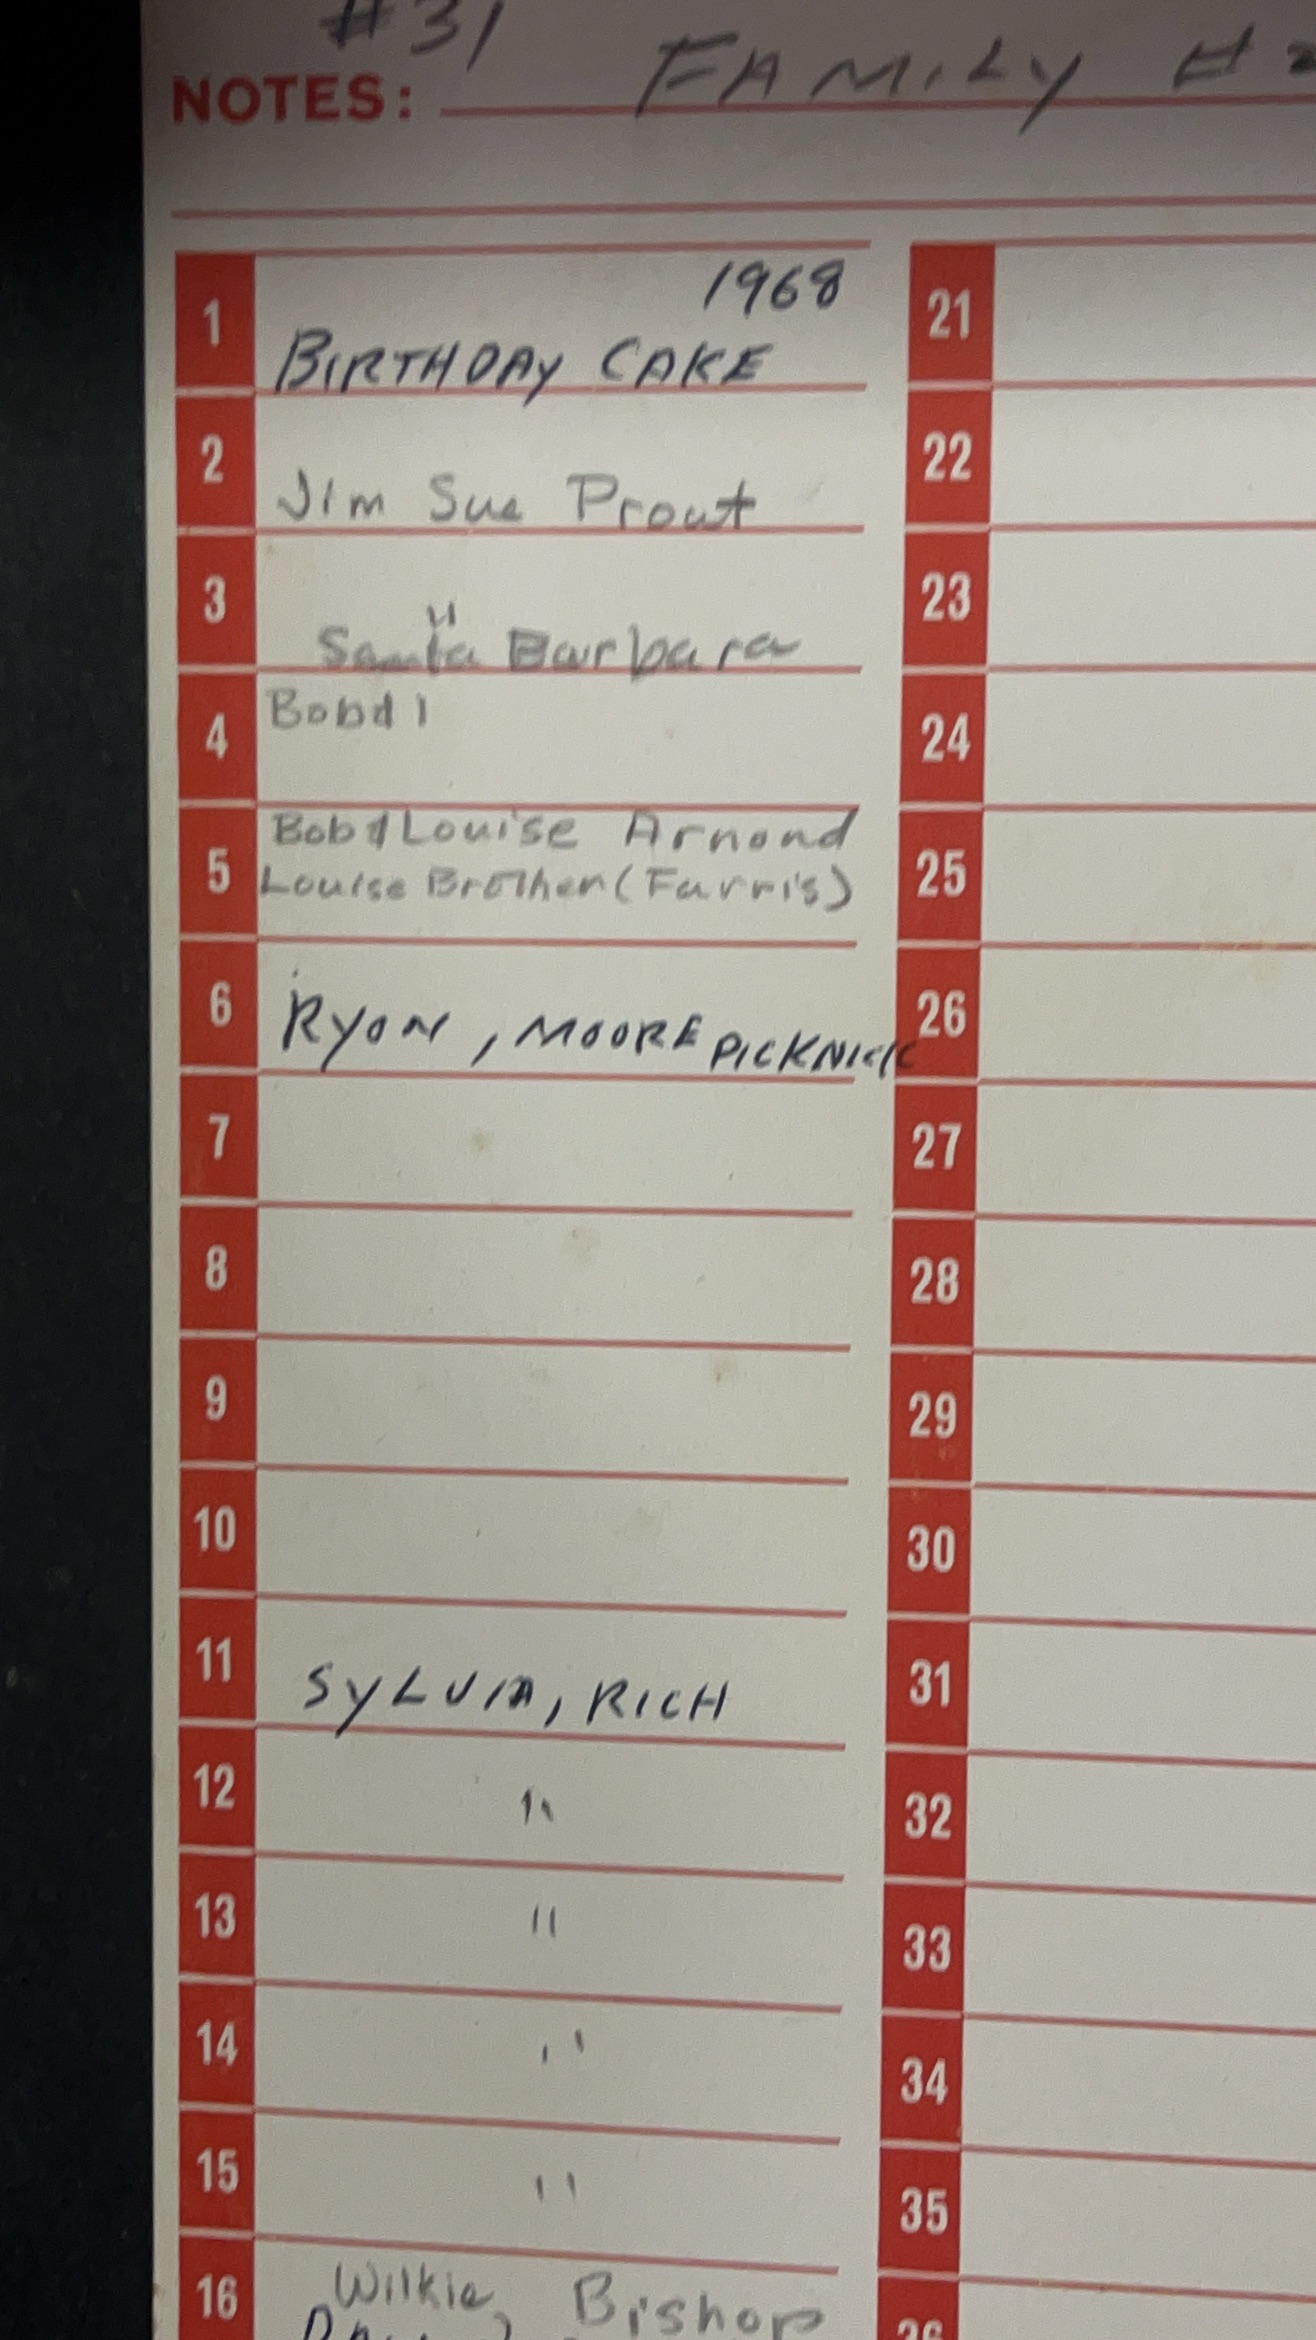 #31
NOTES: FAMILY #2
1 1968
BIRTHDAY CAKE
2 Jim Sue Prout
3 "
Santa Barbara
4 Bobd1
5 Bob & Louise Arnond
Louise Brother (Farris)
6 RYON, MOORE PICKNICK
7
8
9
10
11 SYLVIA, RICH
12 "
13 "
14 "
15 "
16 Wilkie, Bishop
21
22
23
24
25
26
27
28
29
30
31
32
33
34
35
36